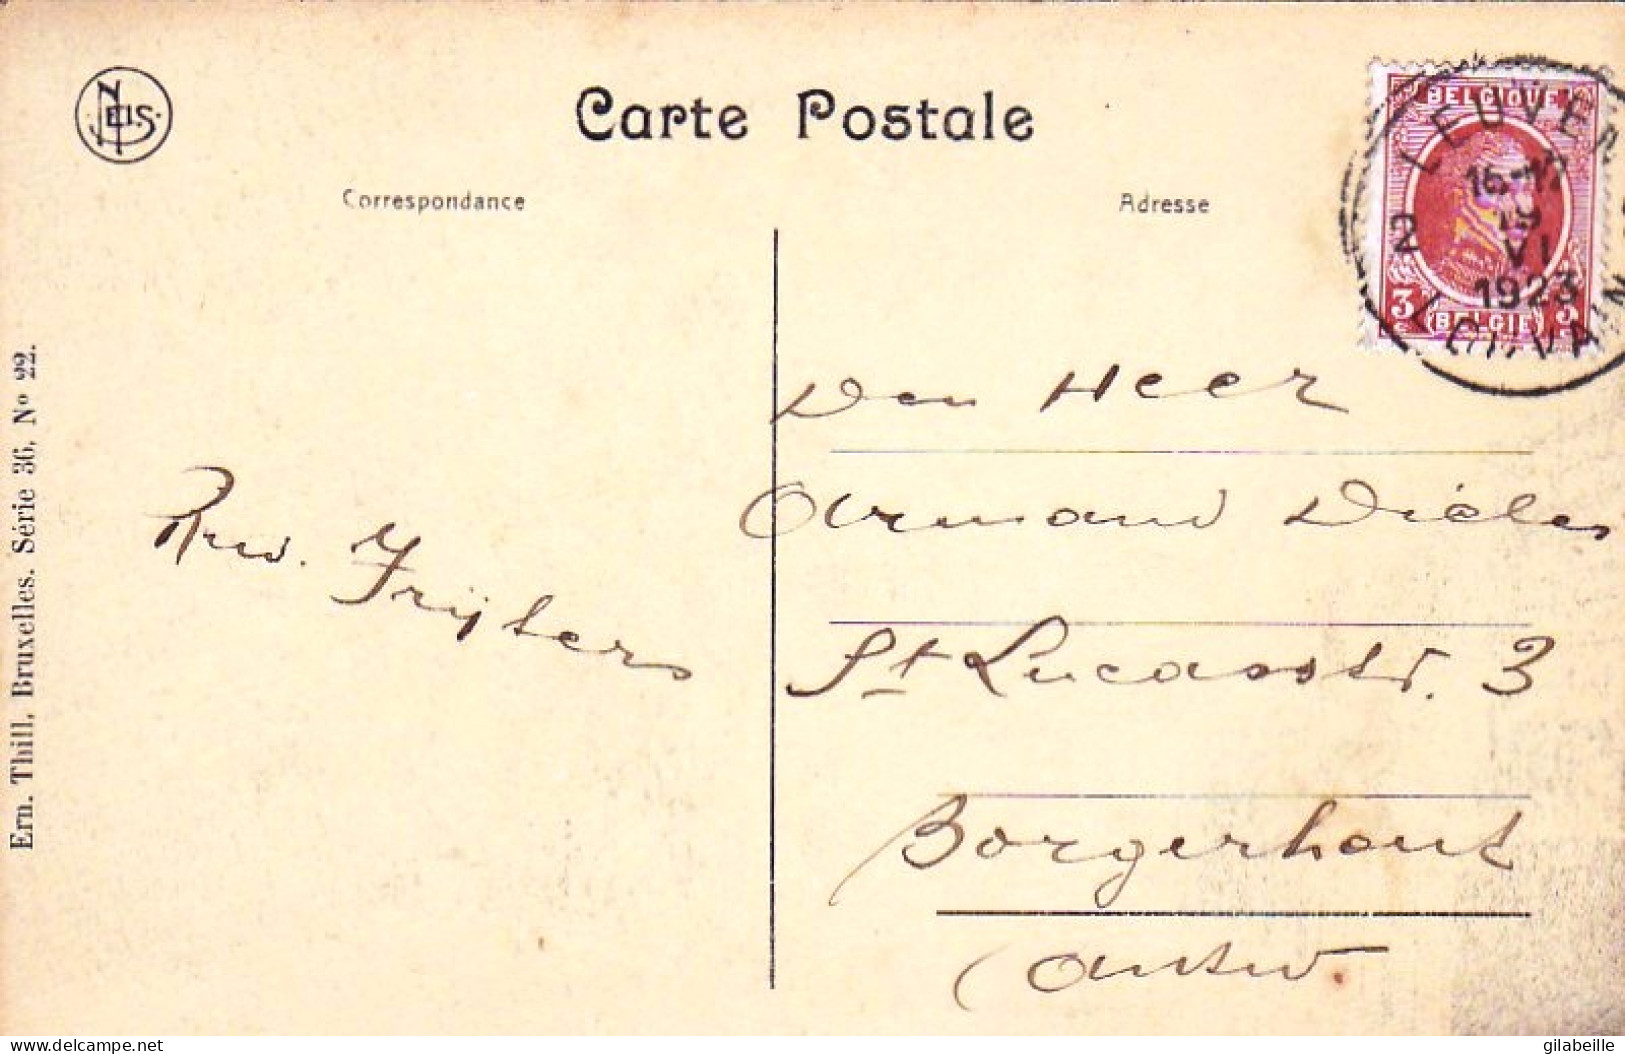 NELS
Carte Postale
Correspondance
Adresse
BELGIQUE
LEUVEN
16-17
19
VI
1923
2
LOUVAIN
3 3
c c
BELGIE
Den Heer
Armand Diéles
St Lucasstr. 3
Borgerhout
(Antw.
Frijters
Ern. Thill, Bruxelles. Série 36, Nº 22.
www.delcampe.net
gilabeille